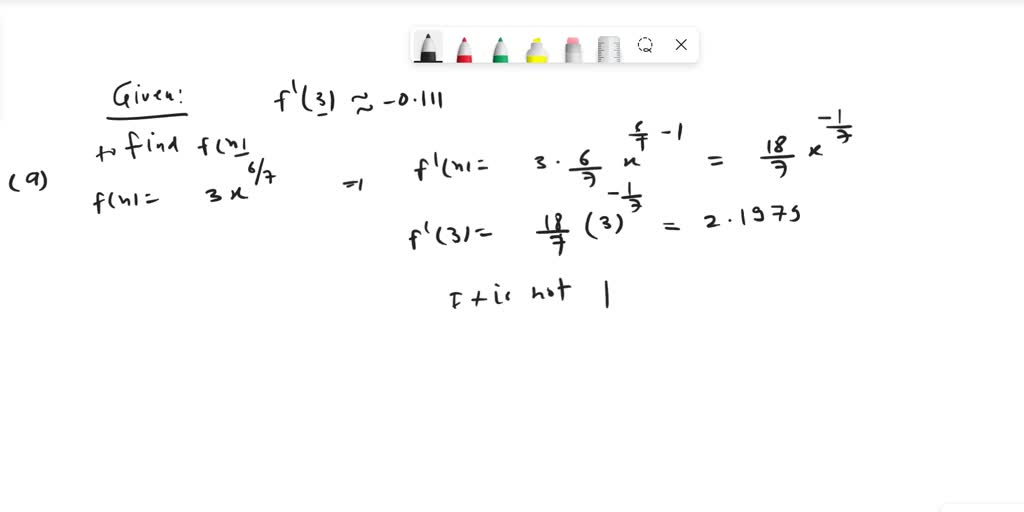 Given: f'(3) ≈ -0.111
to find f(x)
(a) f(x) = 3x^{6/7} ⇒ f'(x) = 3 · 6/7 x^{6/7 - 1} = 18/7 x^{-1/7}
f'(3) = 18/7 (3)^{-1/7} = 2.1979
It is not